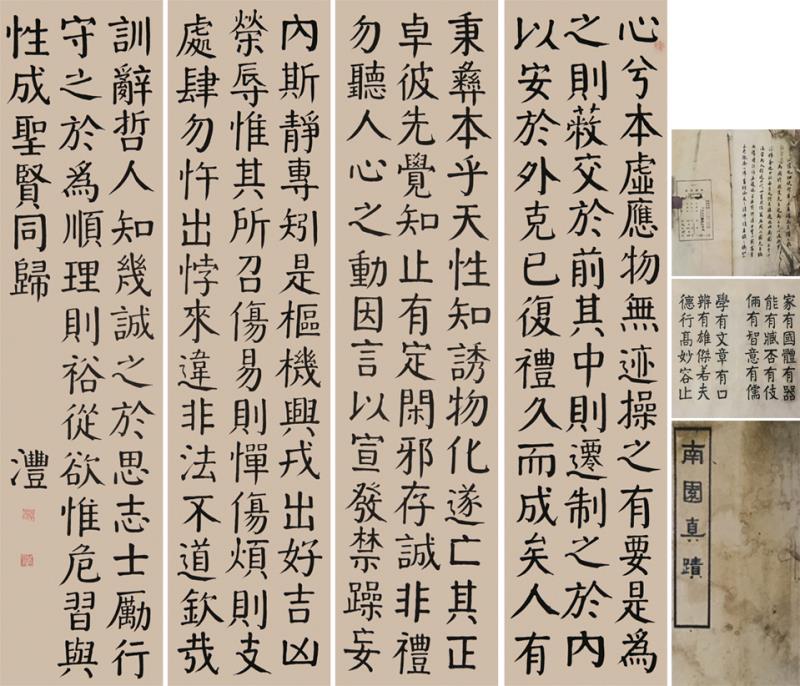 心兮本虛應物無迹操之有要是為
之則蔽交於前其中則遷制之於內
以安於外克己復禮久而成矣人有
秉彝本乎天性知誘物化遂亡其正
卓彼先覺知止有定閑邪存誠非禮
勿聽人心之動因言以宣發禁躁妄
內斯靜專矧是樞機興戎出好吉凶
榮辱惟其所召傷易則憚傷煩則支
處肆勿忤出悖來違非法不道欽哉
訓辭哲人知幾誠之於思志士勵行
守之於為順理則裕從欲惟危習與
性成聖賢同歸
灃
家有國體有器
能有臧否有伎
倆有智意有儒
學有文章有口
辨有雄傑若夫
德行髙妙容止
南園真蹟